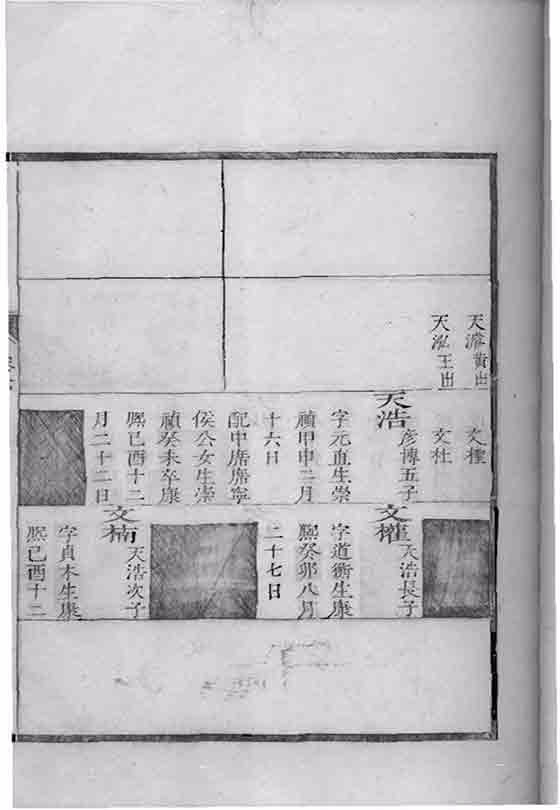 天黄出
天泓王出
文
文杜
天浩
彦博五子
字元直生崇
禎甲申月
十六日
配中席席寧
侯公女生崇
禎癸未卒康
熙己酉十二
月二十二日
文權
天浩長子
字道衡生康
熙癸卯八月
二十七日
文楠
天浩次子
字貞木生康
熙己酉十二